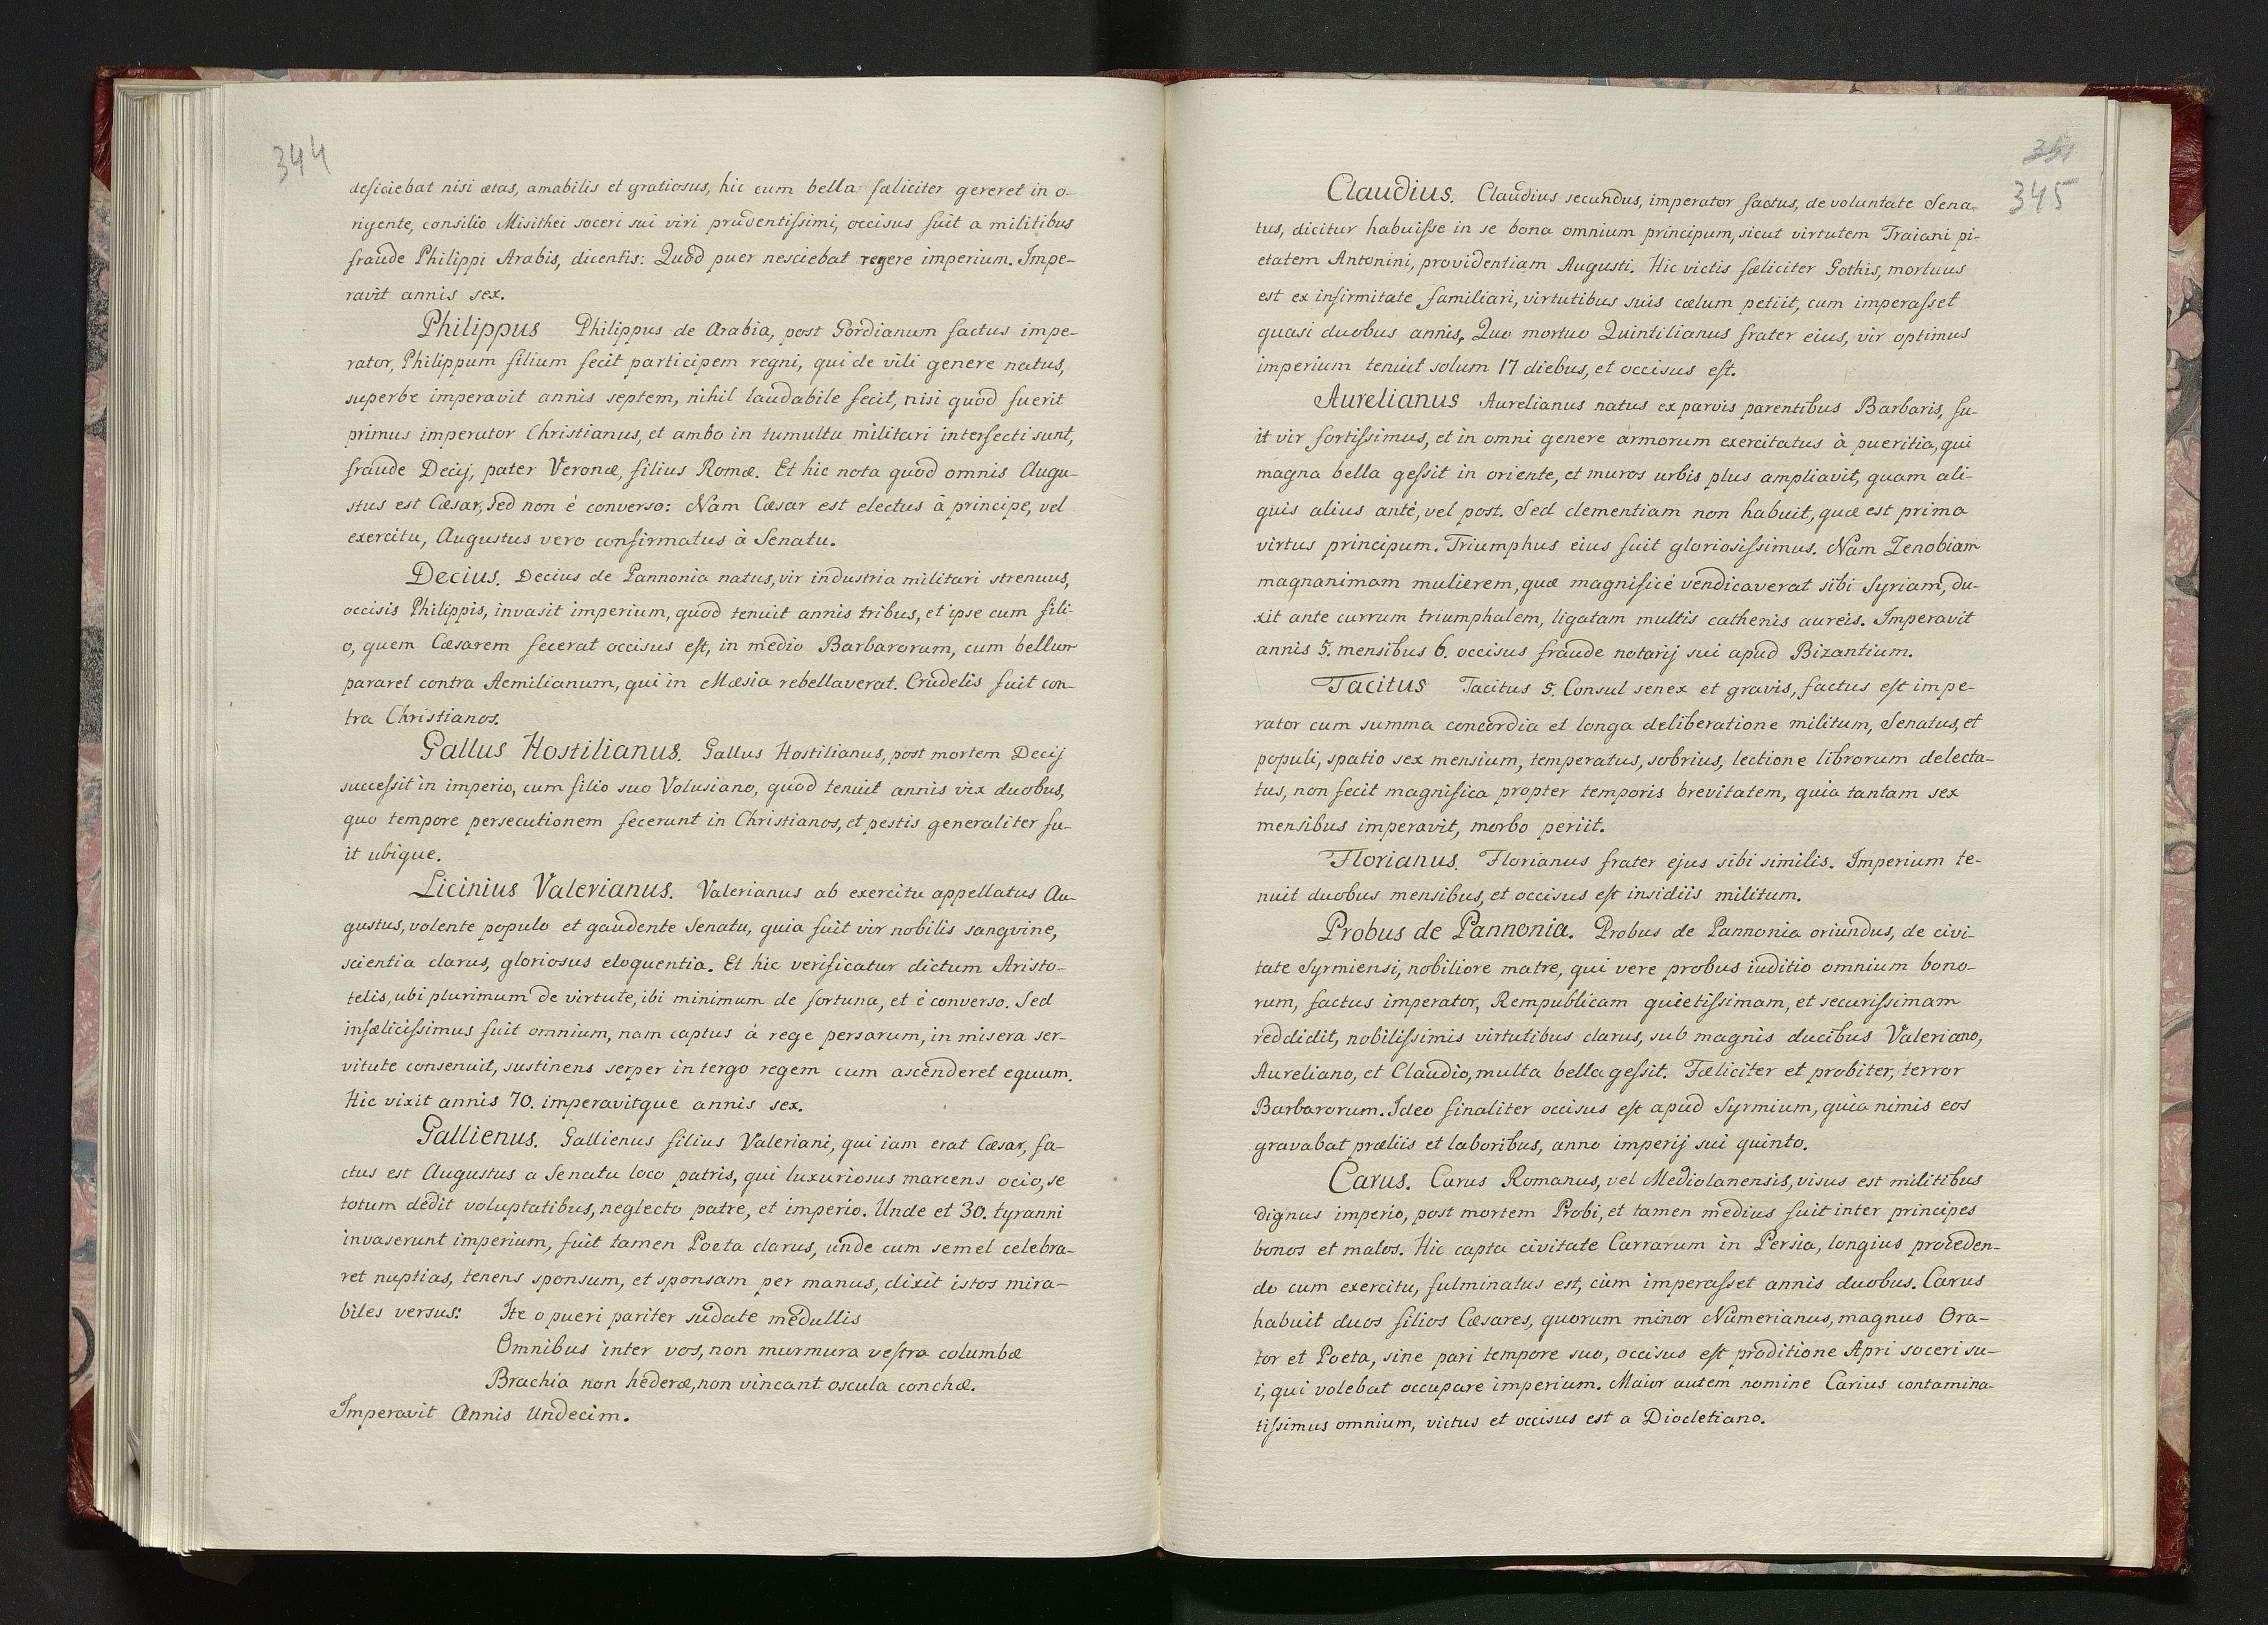 344
deficiebat nisi ætas, amabilis et gratiosus, hic cum bella fæliciter gereret in o-
rigente, consilio Misithei soceri sui viri prudentissimi, occisus fuit a militibus
fraude Philippi Arabis, dicentis: Quòd puer nesciebat regere imperium. Impe-
ravit annis sex.
Philippus Philippus de Arabia, post Gordianum factus impe-
rator, Philippum filium fecit participem regni, qui de vili genere natus,
superbe imperavit annis septem, nihil laudabile fecit, nisi quod fuerit
primus imperator Christianus, et ambo in tumultu militari interfecti sunt,
fraude Decij, pater Veronæ, filius Romæ. Et hic nota quod omnis Augu-
stus est Cæsar, sed non è converso: Nam Cæsar est electus à principe, vel
exercitu, Augustus vero confirmatus à Senatu.
Decius. Decius de Pannonia natus, vir industria militari strenuus,
occisis Philippis, invasit imperium, quod tenuit annis tribus, et ipse cum fili-
o, quem Cæsarem fecerat occisus est, in medio Barbarorum, cum bellum
pararet contra Aemilianum, qui in Mæsia rebellaverat. Crudelis fuit con-
tra Christianos.
Gallus Hostilianus. Gallus Hostilianus, post mortem Decij
successit in imperio, cum filio suo Volusiano, quod tenuit annis vix duobus,
quo tempore persecutionem fecerunt in Christianos, et pestis generaliter fu-
it ubique.
Licinius Valerianus. Valerianus ab exercitu appellatus Au-
gustus, volente populo et gaudente Senatu, quia fuit vir nobilis sangvine,
scientia clarus, gloriosus eloquentia. Et hic verificatur dictum Aristo-
telis, ubi plurimum de virtute, ibi minimum de fortuna, et è converso. Sed
infælicissimus fuit omnium, nam captus à rege persarum, in misera ser-
vitute consenuit, sustinens serper in tergo regem cum ascenderet equum.
Hic vixit annis 70. imperavitque annis sex.
Gallienus. Gallienus filius Valeriani, qui iam erat Cæsar, fa-
ctus est Augustus a Senatu loco patris, qui luxuriosus marcens ocio, se
totum dedit voluptatibus, neglecto patre, et imperio. Unde et 30. tyranni
invaserunt imperium, fuit tamen Poeta clarus, unde cum semel celebra-
ret nuptias, tenens sponsum, et sponsam per manus, dixit istos mira-
biles versus: Ite o pueri pariter sudate medullis
Omnibus inter vos, non murmura vestra columbæ
Brachia non hederæ, non vincant oscula conchæ.
Imperavit Annis Undecim.
345
Claudius. Claudius secundus, imperator factus, de voluntate Sena-
tus, dicitur habuisse in se bona omnium principum, sicut virtutem Traiani pi-
etatem Antonini, providentiam Augusti. Hic victis fæliciter Gothis, mortuus
est ex infirmitate familiari, virtutibus suis cælum petiit, cum imperasset
quasi duobus annis, Quo mortuo Quintilianus frater eius, vir optimus
imperium tenuit solum 17 diebus, et occisus est.
Aurelianus Aurelianus natus ex parvis parentibus Barbaris, fu-
it vir fortissimus, et in omni genere armorum exercitatus à pueritia, qui
magna bella gessit in oriente, et muros urbis plus ampliavit, quam ali-
quis alius antè, vel post. Sed clementiam non habuit, quæ est prima
virtus principum. Triumphus eius fuit gloriosissimus. Nam Zenobiam
magnanimam mulierem, quæ magnificè vendicaverat sibi Syriam, du-
xit ante currum triumphalem, ligatam multis cathenis aureis. Imperavit
annis 5. mensibus 6. occisus fraude notarij sui apud Bizantium.
Tacitus Tacitus 5. Consul senex et gravis, factus est impe-
rator cum summa concordia et longa deliberatione militum, Senatus, et
populi, spatio sex mensium, temperatus, sobrius, lectione librorum delecta-
tus, non fecit magnifica propter temporis brevitatem, quia tantam sex
mensibus imperavit, morbo periit.
Florianus. Florianus frater ejus sibi similis. Imperium te-
nuit duobus mensibus, et occisus est insidiis militum.
Probus de Pannonia. Probus de Pannonia oriundus, de civi-
tate Syrmiensi, nobiliore matre, qui vere probus iuditio omnium bono-
rum, factus imperator, Rempublicam quietissimam, et securissimam
reddidit, nobilissimis virtutibus clarus, sub magnis ducibus Valeriano,
Aureliano, et Claudio, multa bella gessit. Fæliciter et probiter, terror
Barbarorum. Ideo finaliter occisus est apud Syrmium, quia nimis eos
gravabat præliis et laboribus, anno imperij sui quinto.
Carus. Carus Romanus, vel Mediolanensis, visus est militibus
dignus imperio, post mortem Probi, et tamen medius fuit inter principes
bonos et malos. Hic capta civitate Carrarum in Persia, longius proceden-
do cum exercitu, fulminatus est, cùm imperasset annis duobus. Carus
habuit duos filios Cæsares, quorum minor Numerianus, magnus Ora-
tor et Poeta, sine pari tempore suo, occisus est proditione Apri soceri su-
i, qui volebat occupare imperium. Maior autem nomine Carius contamina-
tissimus omnium, victus et occisus est a Diocletiano.